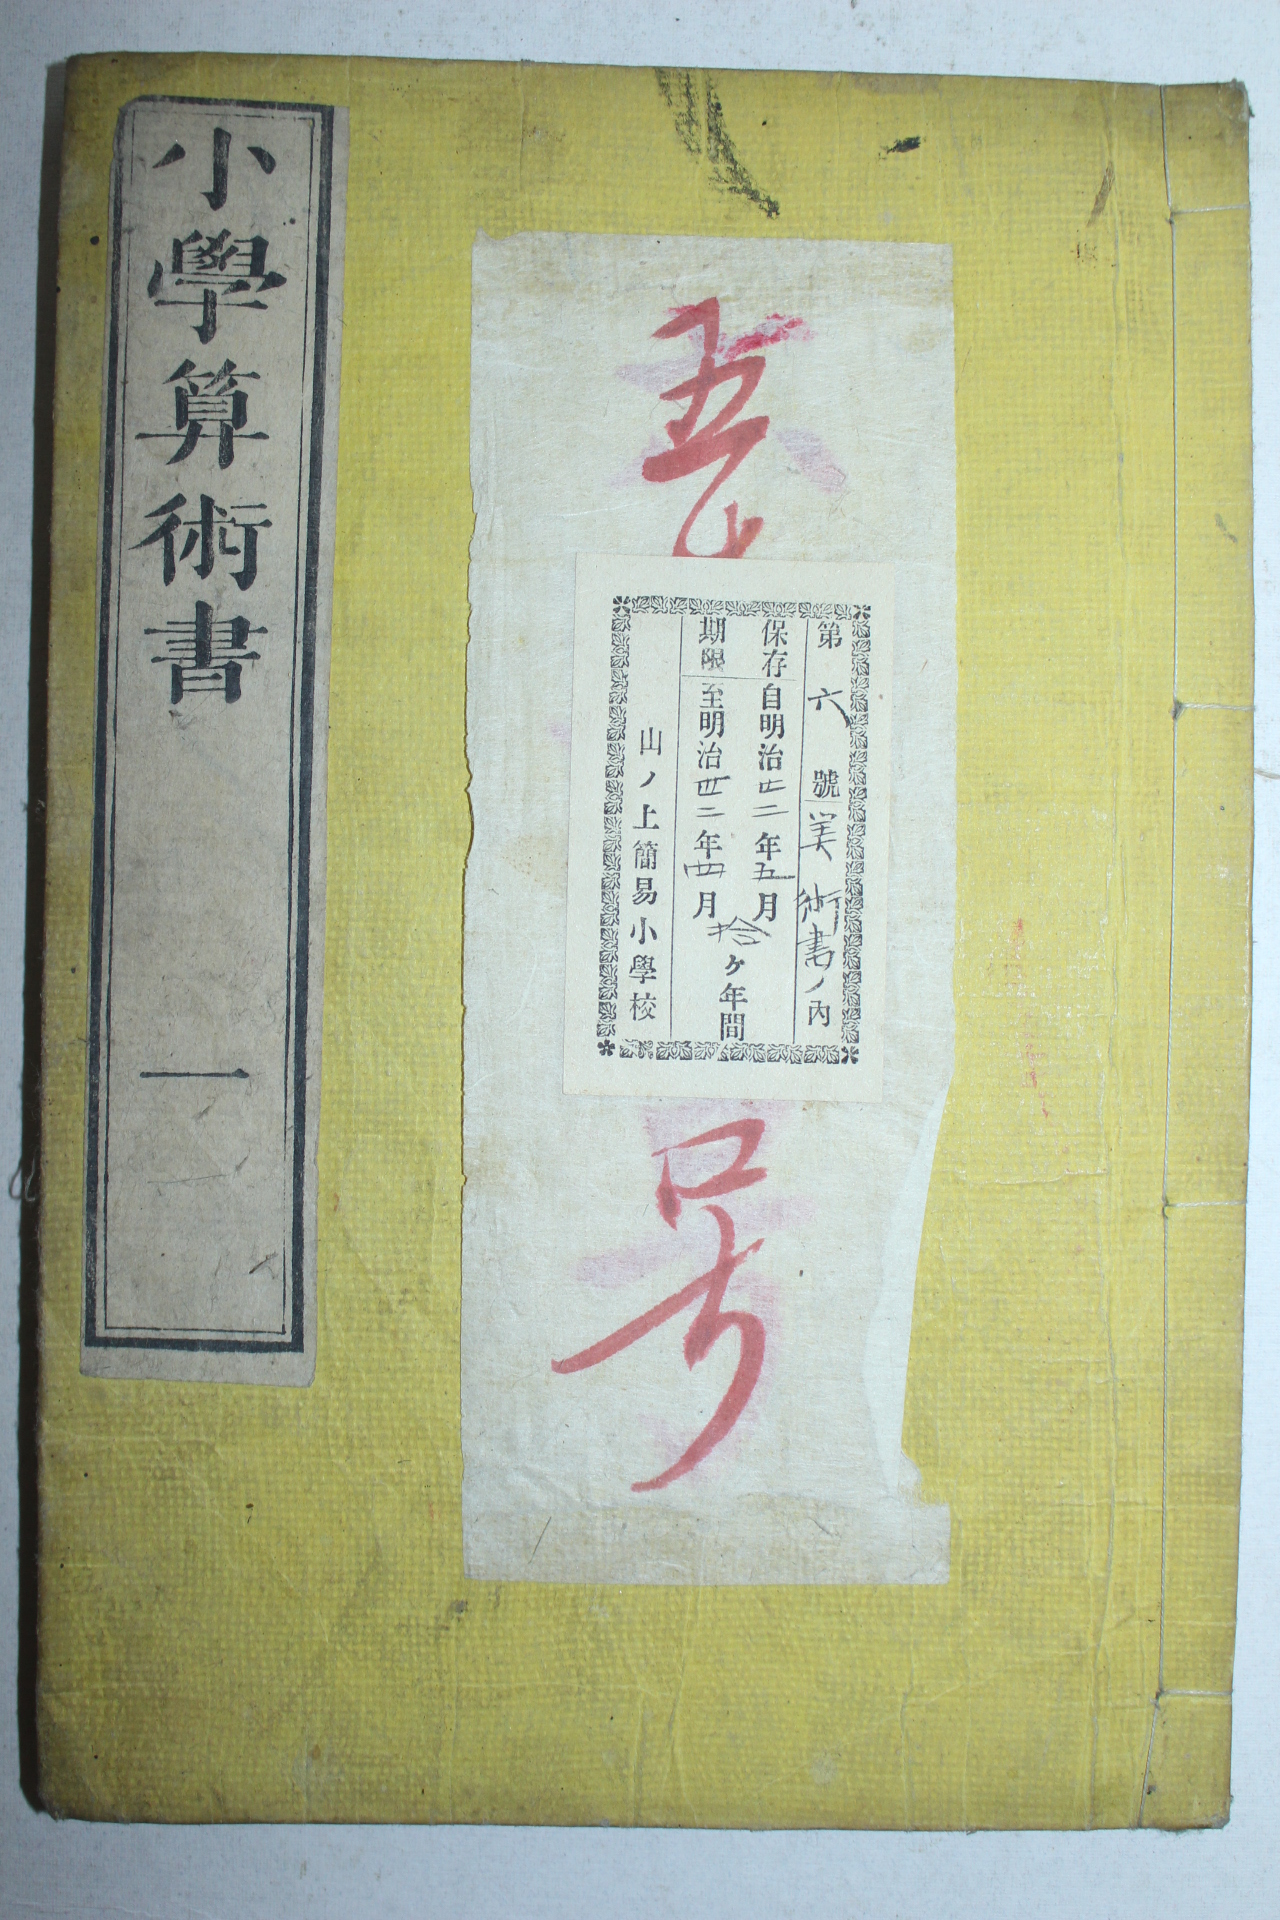 五
号
第六號 美術書ノ內
保存 自明治廿二年五月
期限 至明治丗二年四月
拾ヶ年間
山ノ上簡易小學校
小學算術書 一